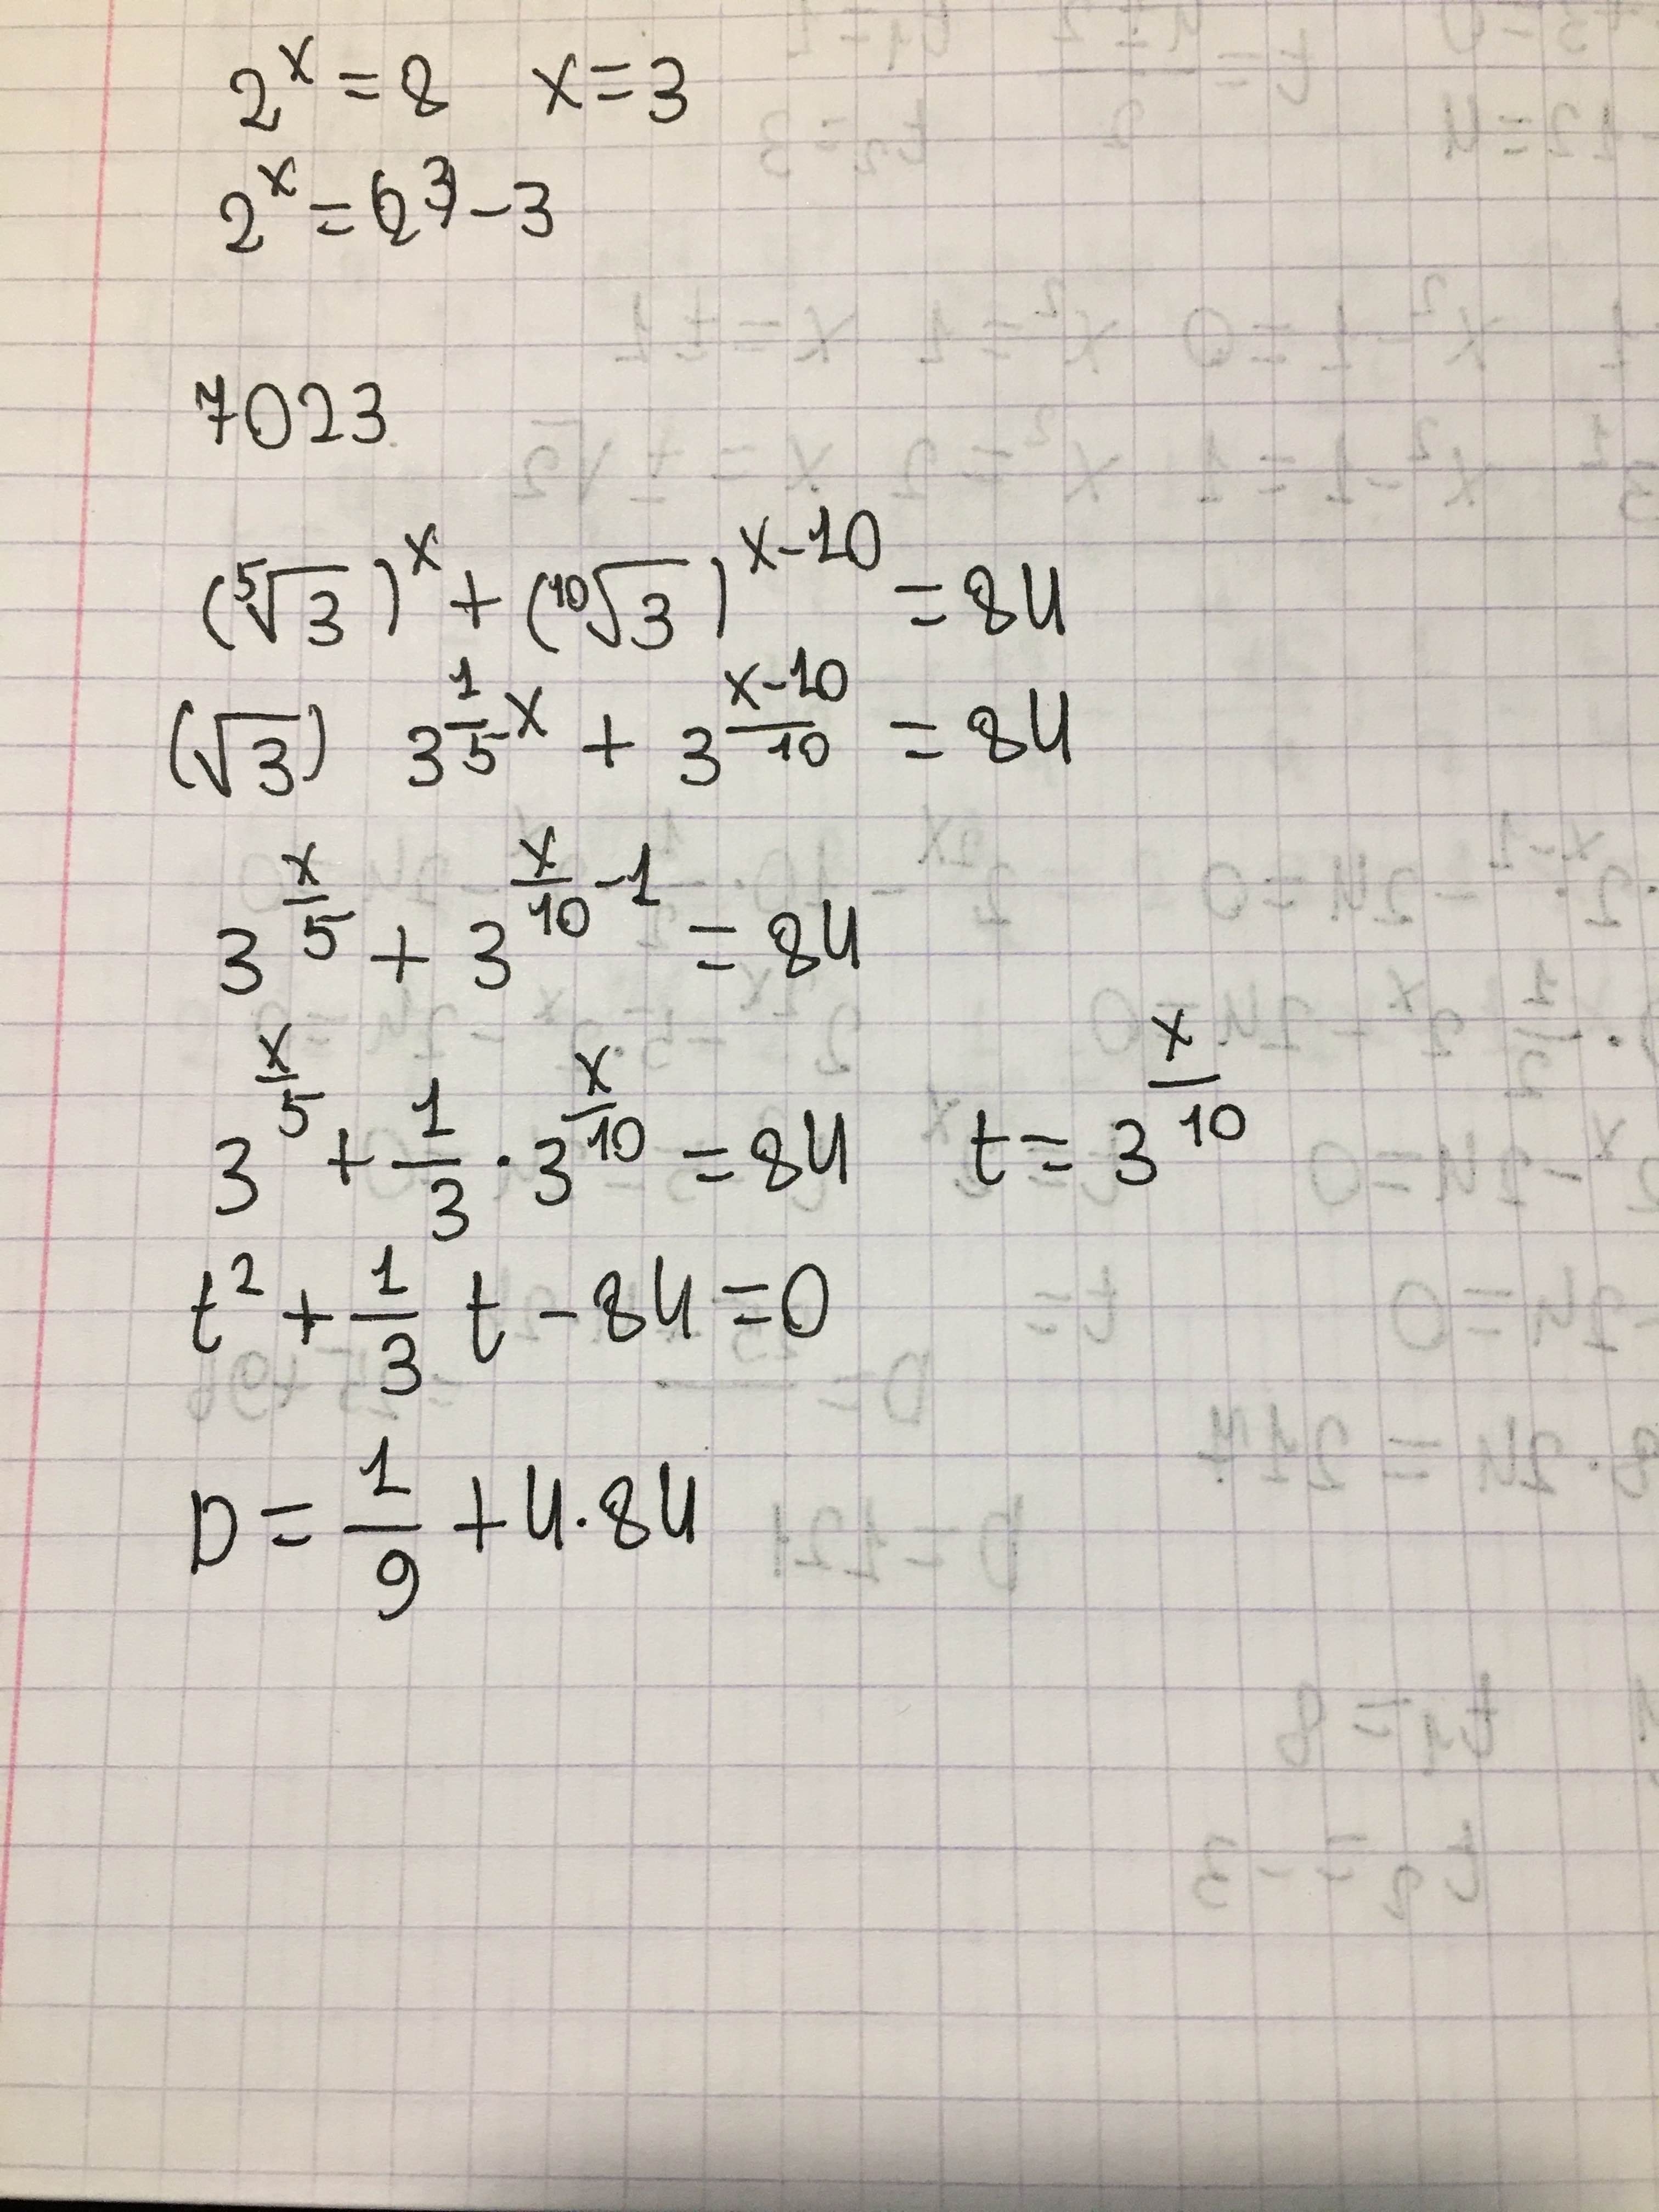 2^x = 8   x = 3
2^x = (2^3) - 3
7023
(⁵√3)^x + (¹⁰√3)^(x-10) = 84
(√3)   3^(1/5 x) + 3^((x-10)/10) = 84
3^(x/5) + 3^(x/10 - 1) = 84
3^(x/5) + 1/3 · 3^(x/10) = 84   t = 3^(x/10)
t² + 1/3 t - 84 = 0
D = 1/9 + 4·84